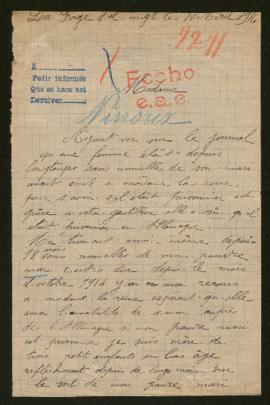 Les Forges s/d. mgh le 10 Avril 1916
7291
A
Pedir informes
Que se hace así
Devolver
Fecho
e.a.e.
Madame
Ayant vue sur le journal
qu'une femme était depuis
longtemps sans nouvelles de son mari
avait écrit à madame la reine
pour savoir s'il était prisonnier et
grâce a votre gentillesse elle a su qu'il
était prisonnier en Allemagne.
Me trouvant moi même depuis
18 mois sans nouvelles de mon pauvre
mari c'est a dire depuis le mois
d'octobre 1914 j'ai eu recours
a madame la reine esperant qu'elle
aura l'amabilité de savoir auprès
de l'Allemagne si mon pauvre mari
est prisonnier je suis mère de
trois petits enfants en bas âge
réfléchissant depuis de longs mois sur
le sort de mon pauvre mari